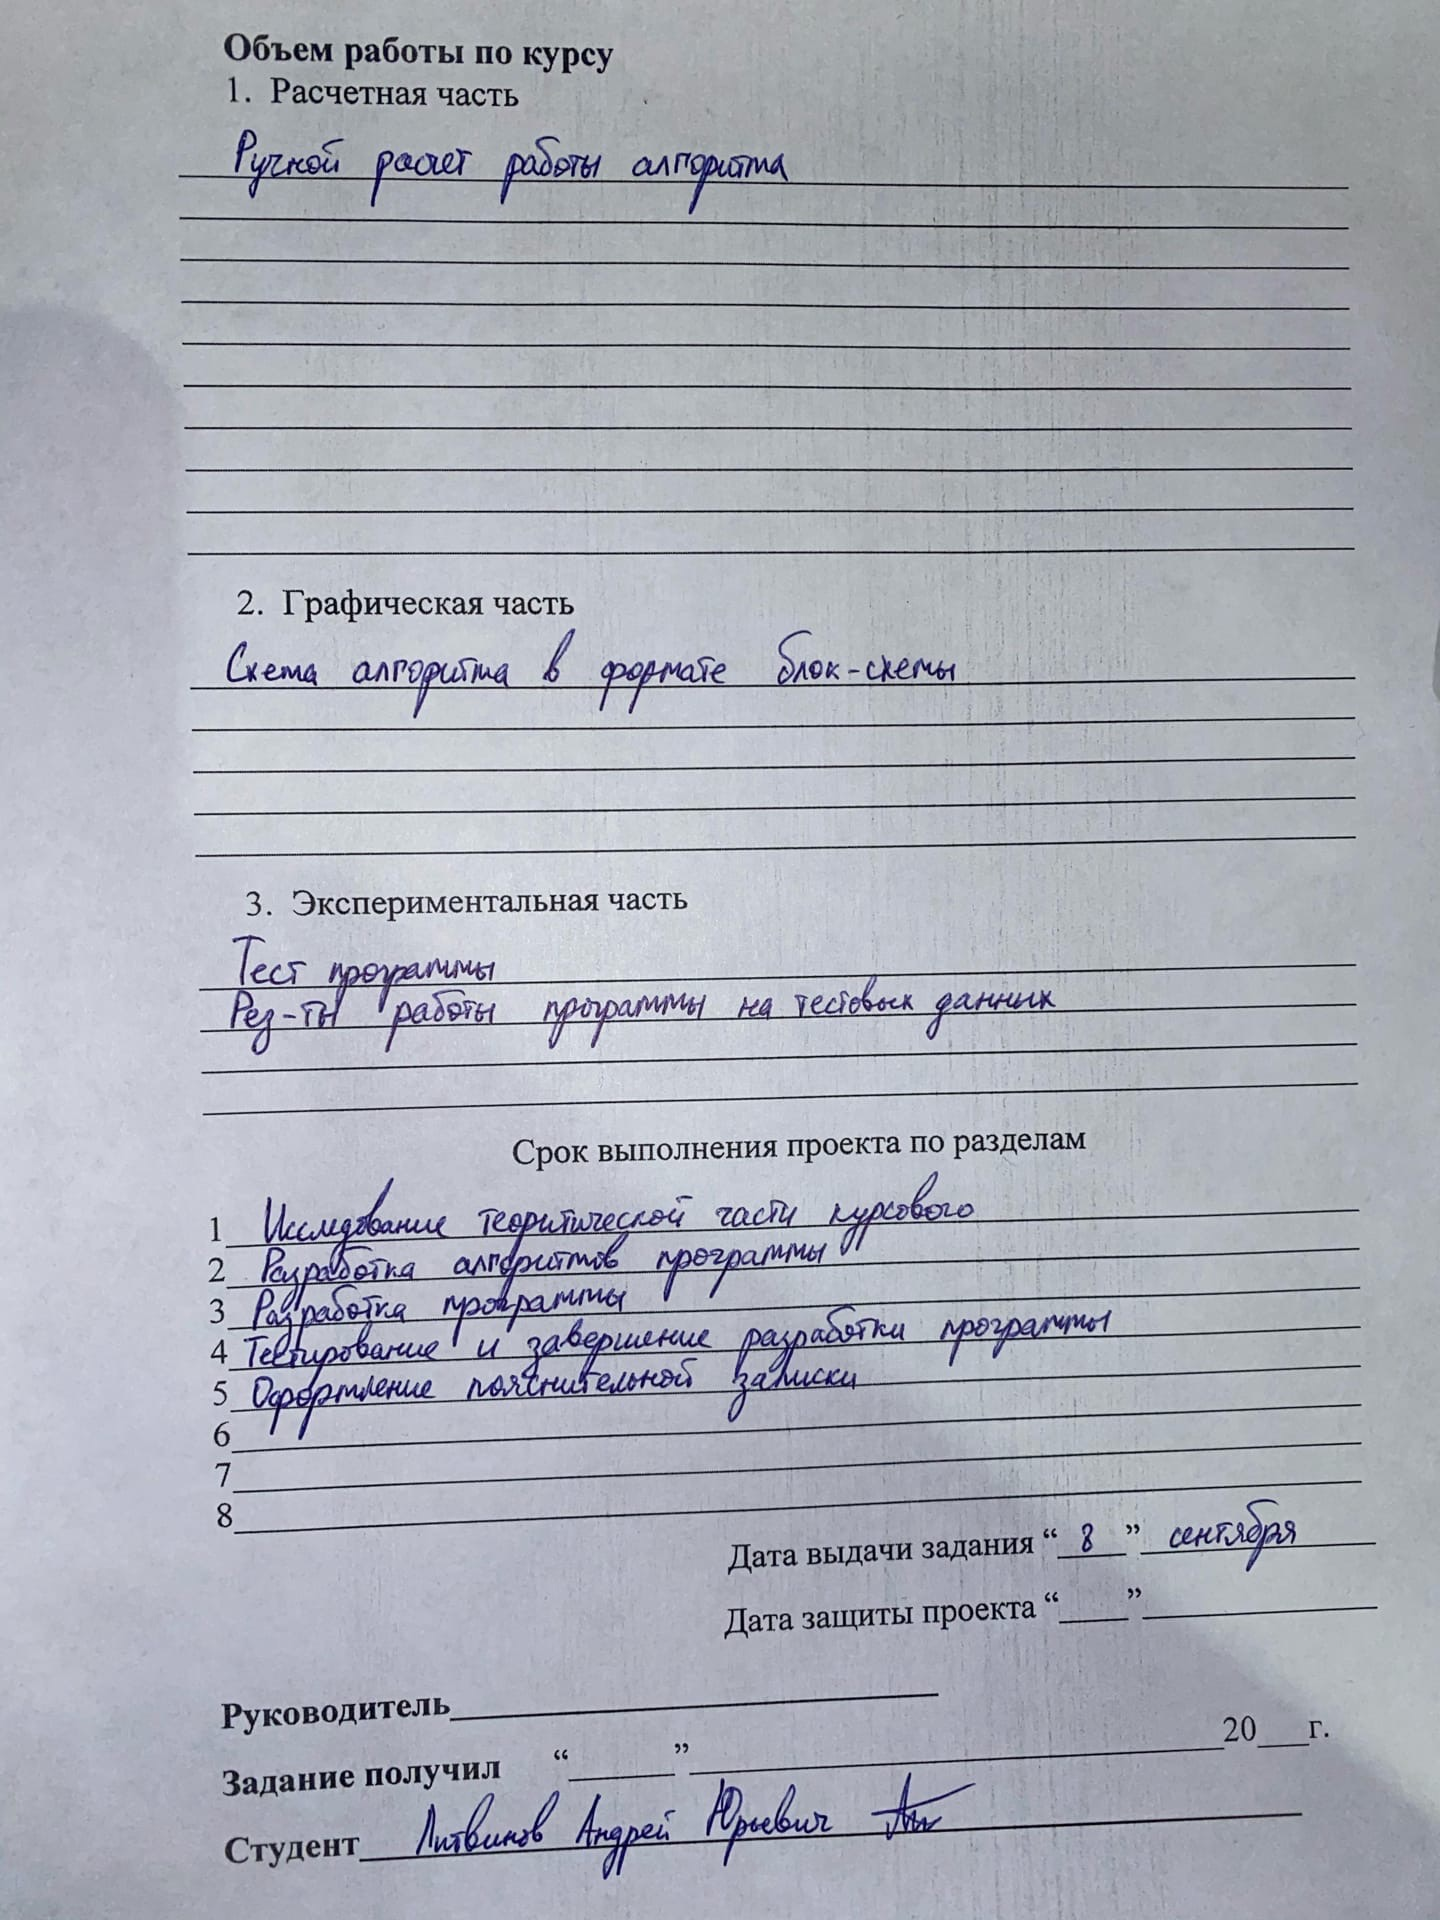 Объем работы по курсу
1. Расчетная часть
Ручной расчет работы алгоритма
2. Графическая часть
Схема алгоритма в формате блок-схемы
3. Экспериментальная часть
Тест программы
Рез-ты работы программы на тестовых данных
Срок выполнения проекта по разделам
1 Исследование теоритической части курсового
2 Разработка алгоритмов программы
3 Разработка программы
4 Тестирование и завершение разработки программы
5 Оформление пояснительной записки
6
7
8
Дата выдачи задания “ 8 ” сентября
Дата защиты проекта “____”
Руководитель
Задание получил “____” 20___г.
Студент Литвинов Андрей Юрьевич